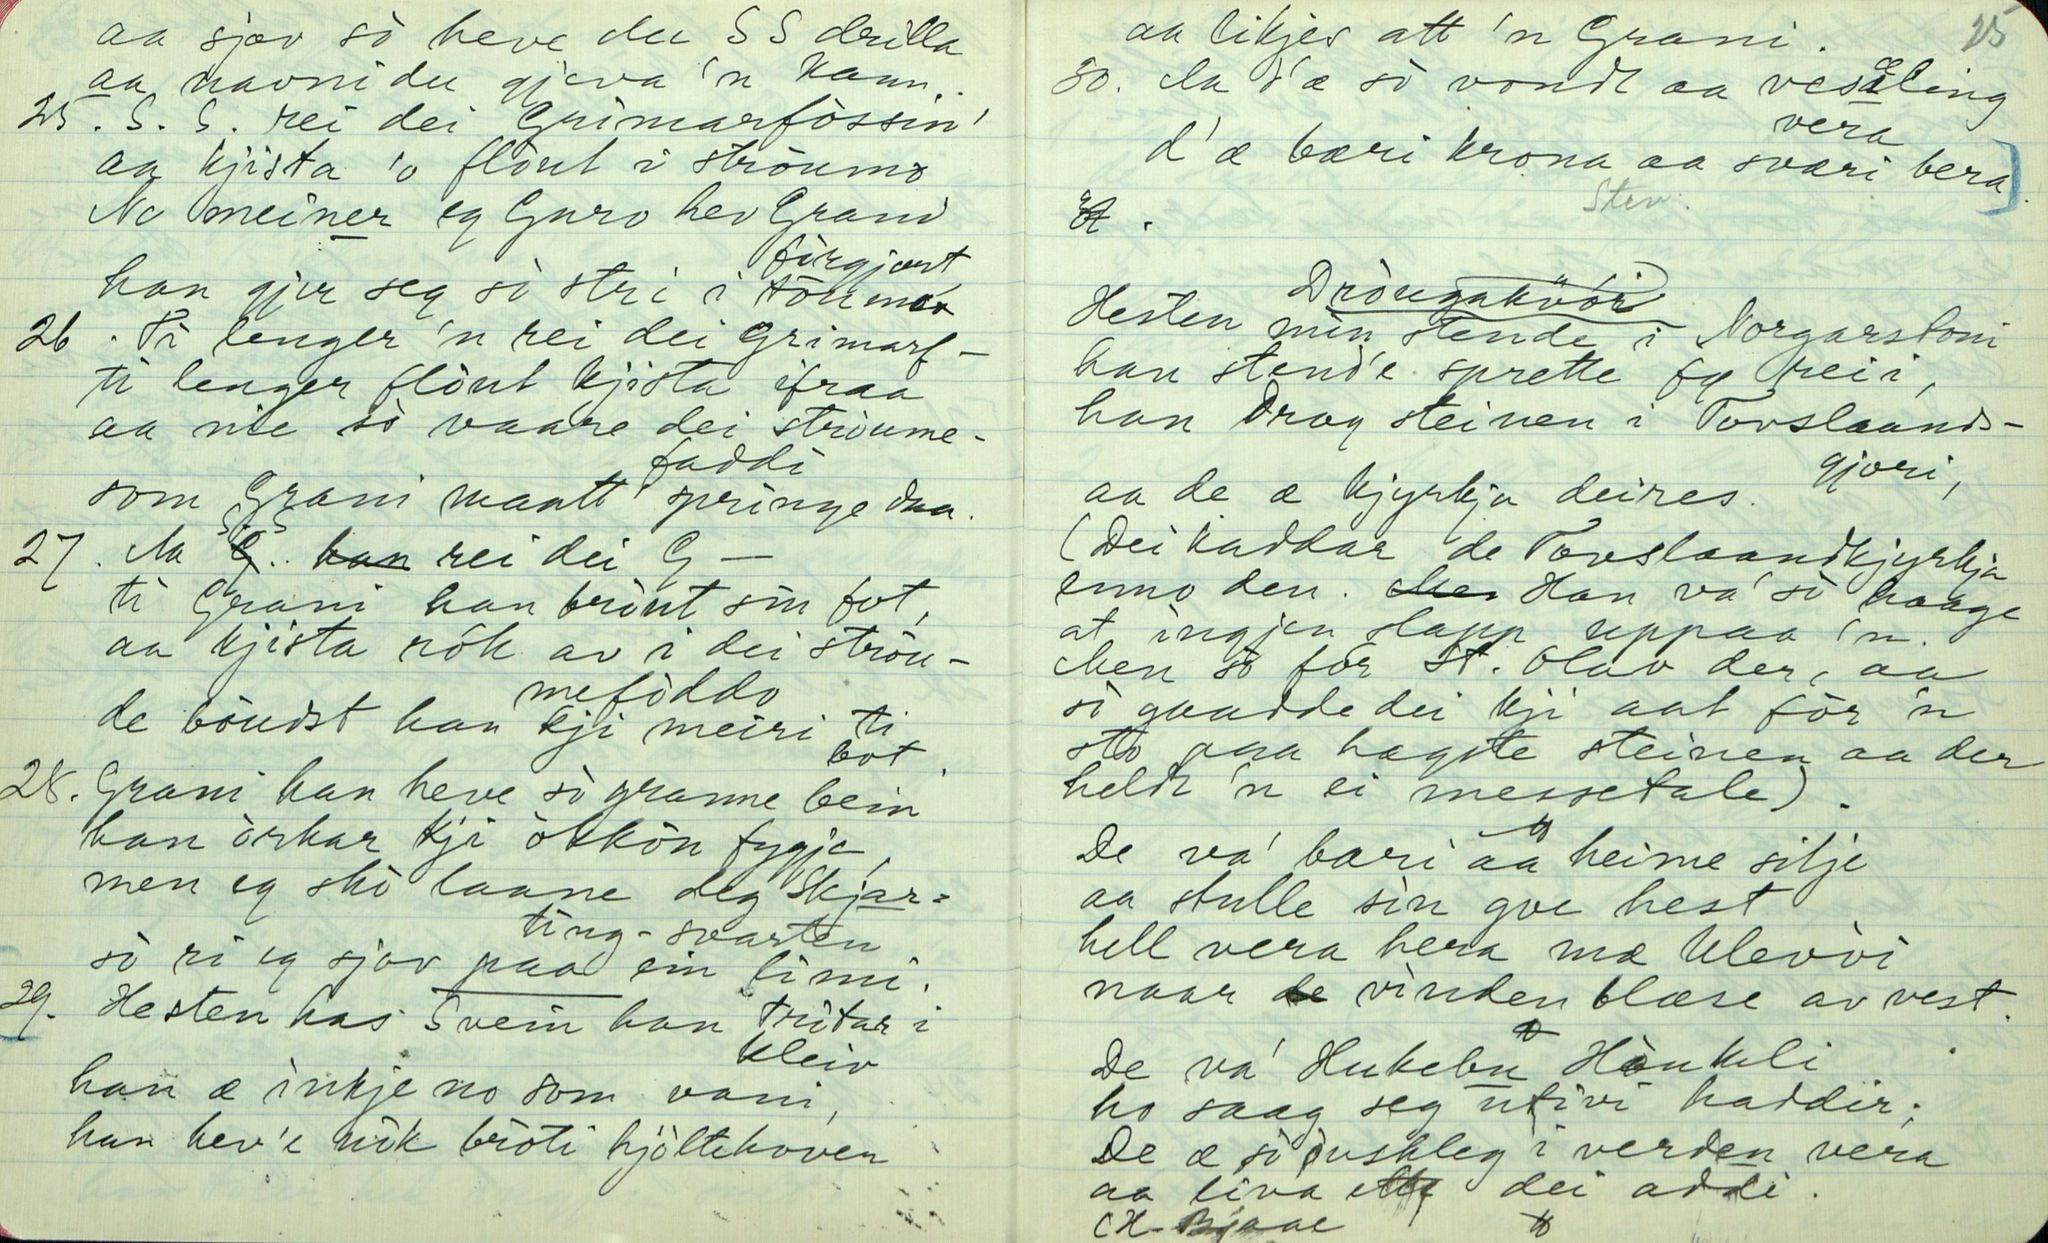 aa sjøv sò heve du S S drilla
aa navni du gjeva 'n kann.
25. S. S. rei dei Grimarfòssin'
aa kjista 'o flòut i stròumo
No meiner eg Guro hev Grani
fòrgjort
han gjer seg sò stri i tòumo
26. Ti lenger 'n rei dei Grimarf-
ti lenger flòut kjista ifraa
aa nie sò vaare dei stròume-
faddi
som Grani maatt' springe daa.
27. Aa S S rei dei G —
ti Grani han bròut sin fot,
aa kjista rók av i dei stròu-
mefòddo
de bòudst han kji meiri ti
bot.
28. Grani han heve sò granne bein
han òrkar kji òkkòn fygje,
men eg skò laane deg Skjar-
ting-svarten
sò ri eg sjøv paa ein limi.
29. Hesten has Svein han tritar i
kleiv
han æ inkje no som vani,
han hev'e nòk bròti hjòltehoven
25
aa likjes att 'n Grani.
30. Aa d'æ sò vondt aa vesæling
vera
d'æ bæri krona aa sværi bera
Stev.
Dròugakvòr
Hesten min stende i Norgarstoni
han stend'e sprette fy rei i,
han Drog steinen i Tovslaands-
gjori,
aa de æ kjyrkja deires.
(Dei kaddar de Tovslaandkjyrkja
enno den. Han va' sò haage
at ingjen slapp uppaa 'n.
Men so fór St. Olav der, aa
sò gaadde dei kji aat fòr 'n
sto paa hagste steinen aa der
heldt 'n ei messetale).
De va' bæri aa heime silje
aa stulle sin goe hest
hell vera hera mæ Ulevivi
naar vinden blæse av vest.
De va' Hukebu Hònkeli
ho saag seg utivi haddir;
De æ sò òuskleg i verden vera
aa liva dei addi.
(H. Bjaae